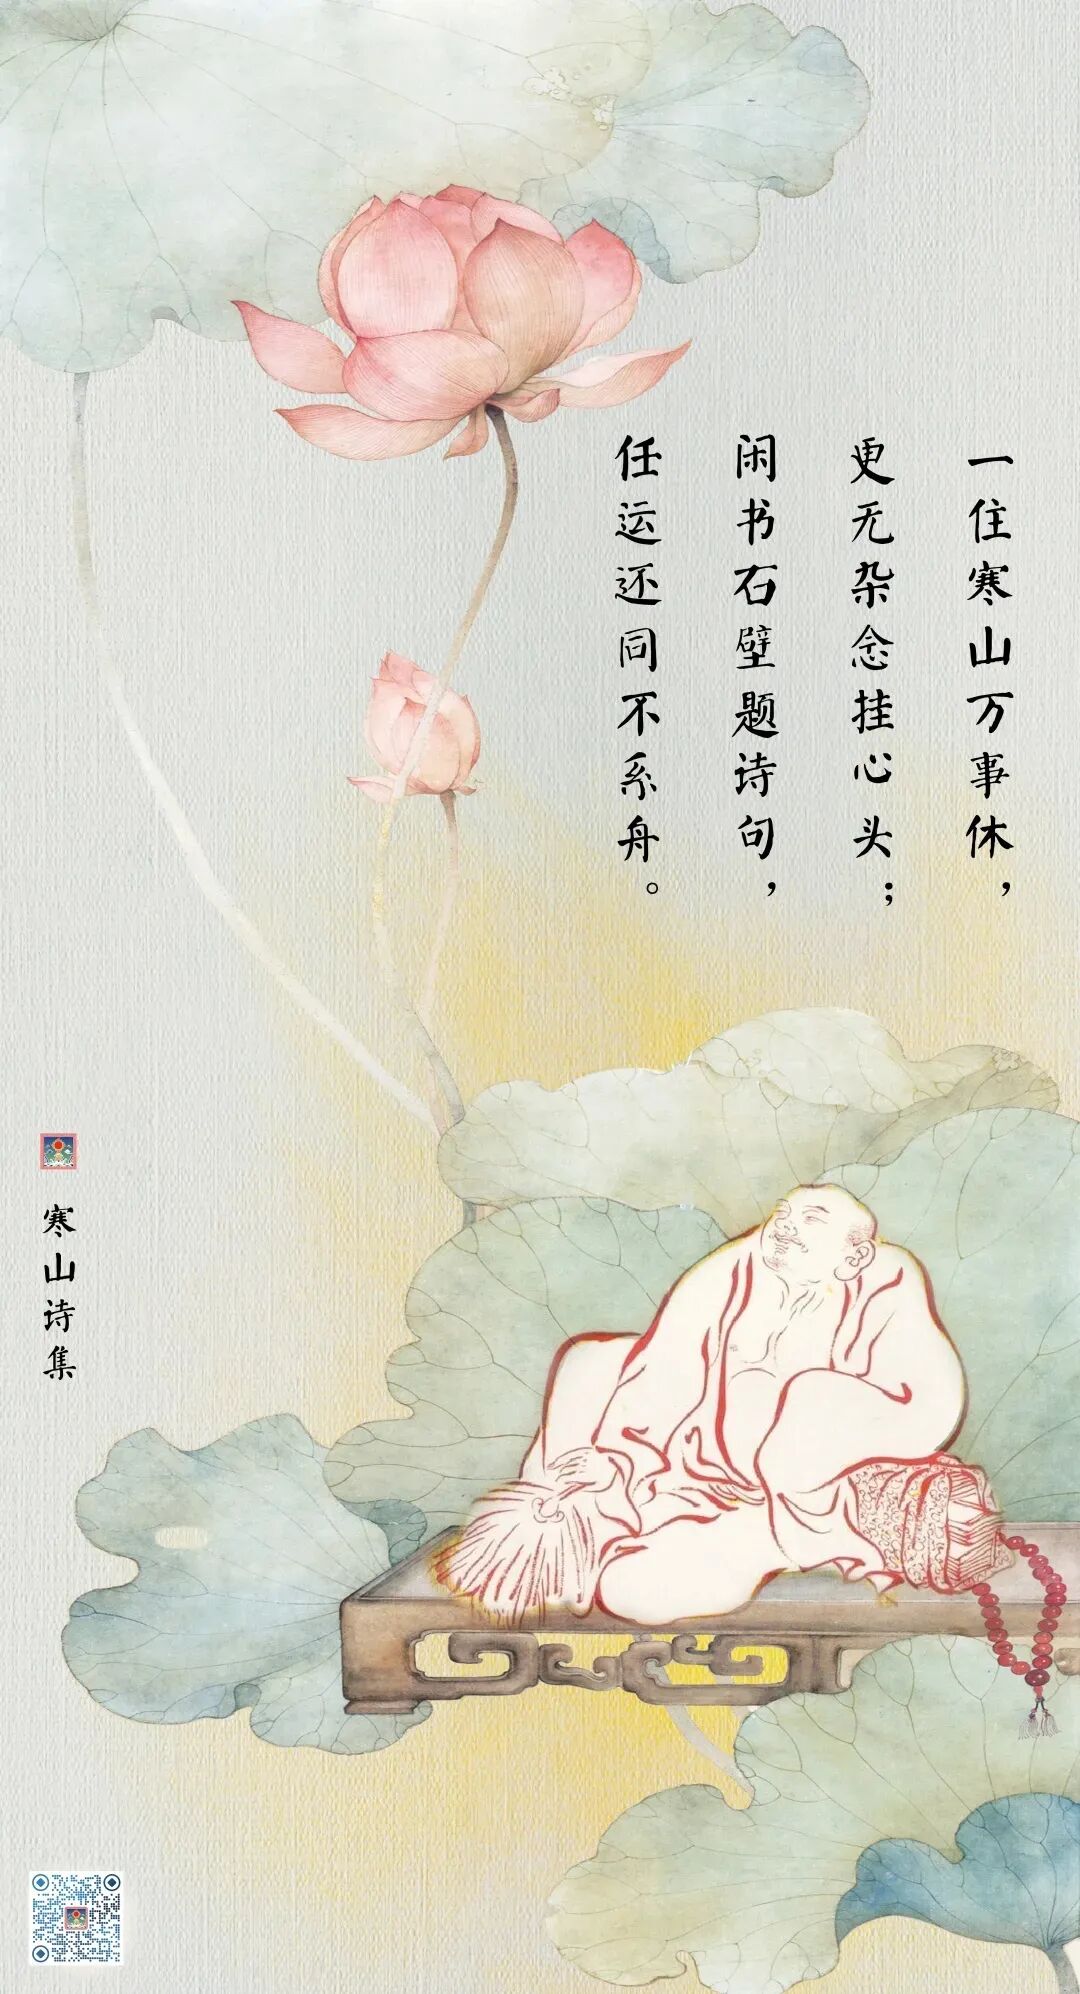 一住寒山万事休，
更无杂念挂心头；
闲书石壁题诗句，
任运还同不系舟。
寒山诗集